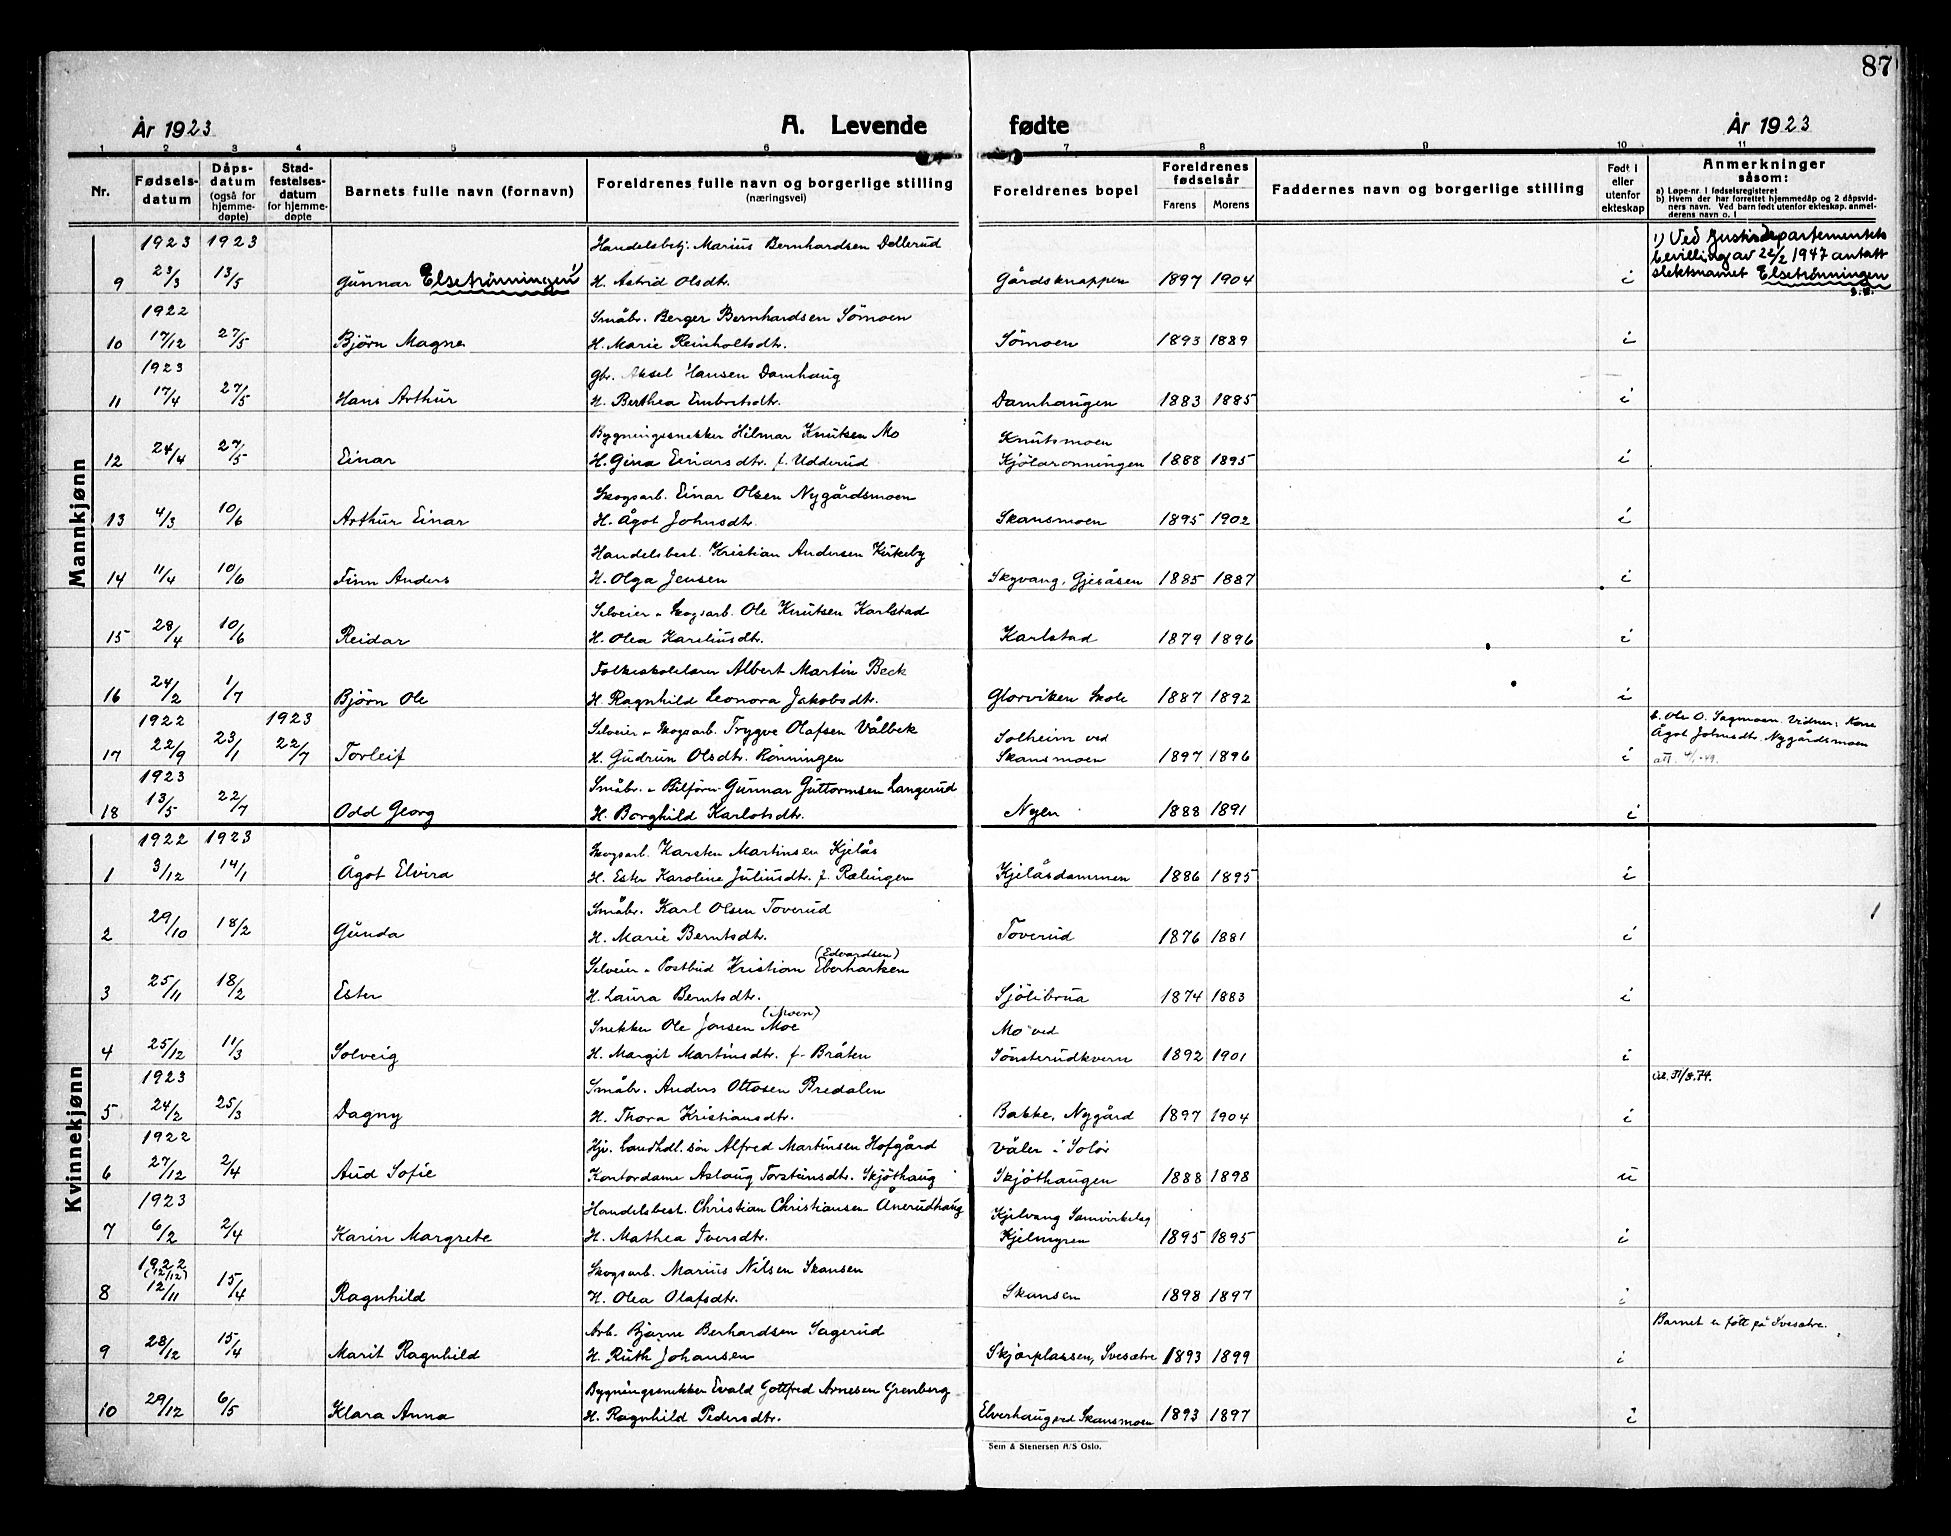 87
År 1923 A. Levende fødte År 1923
1 2 3 4 5 6 7 8 9 10 11
Nr. Fødsels-datum Dåps-datum (også for hjemme-døpte) Stad-festelses-datum for hjemme-døpte Barnets fulle navn (fornavn) Foreldrenes fulle navn og borgerlige stilling (næringsvei) Foreldrenes bopel Foreldrenes fødselsår Farens Morens Faddernes navn og borgerlige stilling Født i eller utenfor ekteskap Anmerkninger såsom:
a) Løpe-nr. i fødselsregisteret
b) Hvem der har forrettet hjemmedåp og 2 dåpsvid-
ners navn. Ved barn født utenfor ekteskap, anmel-
derens navn o. l
Mannkjønn
1923 1923 Handelsbetj. Marius Bernhardsen Dollerud 1) Ved Justisdepartementets
bevilling av 22/2 1947 antatt
9 23/3 13/5 Gunnar Elsetrønningen 1) H. Astrid Olsdtr. Gårdsknappen 1897 1904 i slektsnamet Elsetrønningen
1922 Småbr. Berger Bernhardsen Sömoen
10 17/12 27/5 Björn Magne H. Marie Reinholtsdtr. Sömoen 1893 1889 i
1923 Gbr. Aksel Hansen Damhaug
11 17/4 27/5 Hans Arthur H. Berthea Embretsdtr. Damhaugen 1883 1885 i
Bygningssnekker Hilmar Knutsen Mo Knutsmoen
12 24/4 27/5 Einar H. Gina Einarsdtr. f. Udderud Kjölarönningen 1888 1895 i
Skogsarb. Einar Olsen Nygårdsmoen
13 4/3 10/6 Arthur Einar H. Ågot Johnsdtr. Skansmoen 1895 1902 i
Handelsbest. Kristian Andersen Kirkeby
14 11/4 10/6 Finn Anders H. Olga Jensen Skyvang, Gjesåsen 1885 1887 i
Selveier " Skogsarb. Ole Knutsen Karlstad
15 28/4 10/6 Reidar H. Olea Kareliusdtr. Karlstad 1879 1896 i
Folkeskolelærer Albert Martin Beck
16 24/2 1/7 Björn Ole H. Ragnhild Leonora Jakobsdtr. Glorvigen Skole 1887 1892 i
1922 1923 Selveier " Skogsarb. Trygve Olafsen Vålbek Solheim ved b. Ole O. Sagmoen. Vidner: Kone
Ågot Johnsdtr. Nygårdsmoen
17 22/9 23/1 22/7 Torleif H. Gudrun Olsdtr. Rönningen Skansmoen 1897 1896 i att. 4/1-49.
1923 Småbr. " Bilförer Gunnar Guttormsen Langerud
18 13/5 22/7 Odd Georg H. Borghild Karlotsdtr. Nyen 1888 1891 i
Kvinnekjønn
1922 1923 Skogsarb. Karsten Martinsen Kjelås
1 3/12 14/1 Ågot Elvira H. Ester Karoline Juliusdtr. f. Rælingen Kjelåsdammen 1886 1895 i
Småbr. Karl Olsen Toverud
2 29/10 18/2 Gunda H. Marie Berntsdtr. Toverud 1876 1881 i
(Edvardsen)
Selveier " Postbud Kristian Eberharken
3 25/11 18/2 Ester H. Laura Berntsdtr. Sjölibrua 1874 1883 i
(Moen)
Snekker Ole Jonsen Moe Mo ved
4 25/12 11/3 Solveig H. Margit Martinsdtr. f. Bråten Sönsterudkvern 1892 1901 i
1923 Småbr. Anders Ottosen Bredalen
5 24/2 25/3 Dagny H. Thora Kristiansdtr. Bakke, Nygård 1897 1904 i
1922 Hjv. Landhdl. sön Alfred Martinsen Hofgård Våler i Solör
6 27/12 2/4 Aud Sofie Kontordame Aslaug Torsteinsdtr. Skjöthaug Skjöthaugen 1888 1898 u
1923 Handelsbest. Christian Christiansen Ånerudhaug Kjelvang Samvirkelag
7 6/2 2/4 Karin Margrete H. Mathea Iversdtr. Kjelmyren 1895 1895 i
1922
(12/12) Skogsarb. Marius Nilsen Skansen
8 12/11 15/4 Ragnhild H. Olea Olafsdtr. Skansen 1898 1897 i
Arb. Bjarne Berhardsen Sagerud Barnet er födt på Svesætre.
9 28/12 15/4 Marit Ragnhild H. Ruth Johansen Skjærplassen, Svesætre 1893 1899 i
Bygningssnekker Evald Gottfred Arnesen Grenberg
10 29/12 6/5 Klara Anna H. Ragnhild Pedersdtr. Elverhaug ved Skansmoen 1893 1897 i
Sem & Stenersen A/S Oslo.